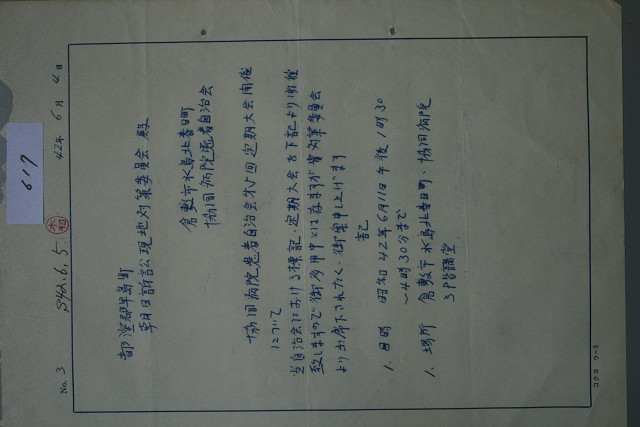 617
No. 3
S42.6.5
42年 6月 4日
都窪郡早島町
朝日訴訟現地対策委員会 殿
倉敷市水島北春日町
協同病院患者自治会
協同病院患者自治会オ5回定期大会開催
について
当自治会における標記、定期大会を下記より開催
致しますので御多用中とは存ますが貴対策委員会
より出席下されたく、御案内申し上げます
記
1. 日時 昭和42年6月11日午後1時30
〜4時30分まで
1. 場所 倉敷市水島北春日町、協同病院
3階講堂
コクヨ ケ-3